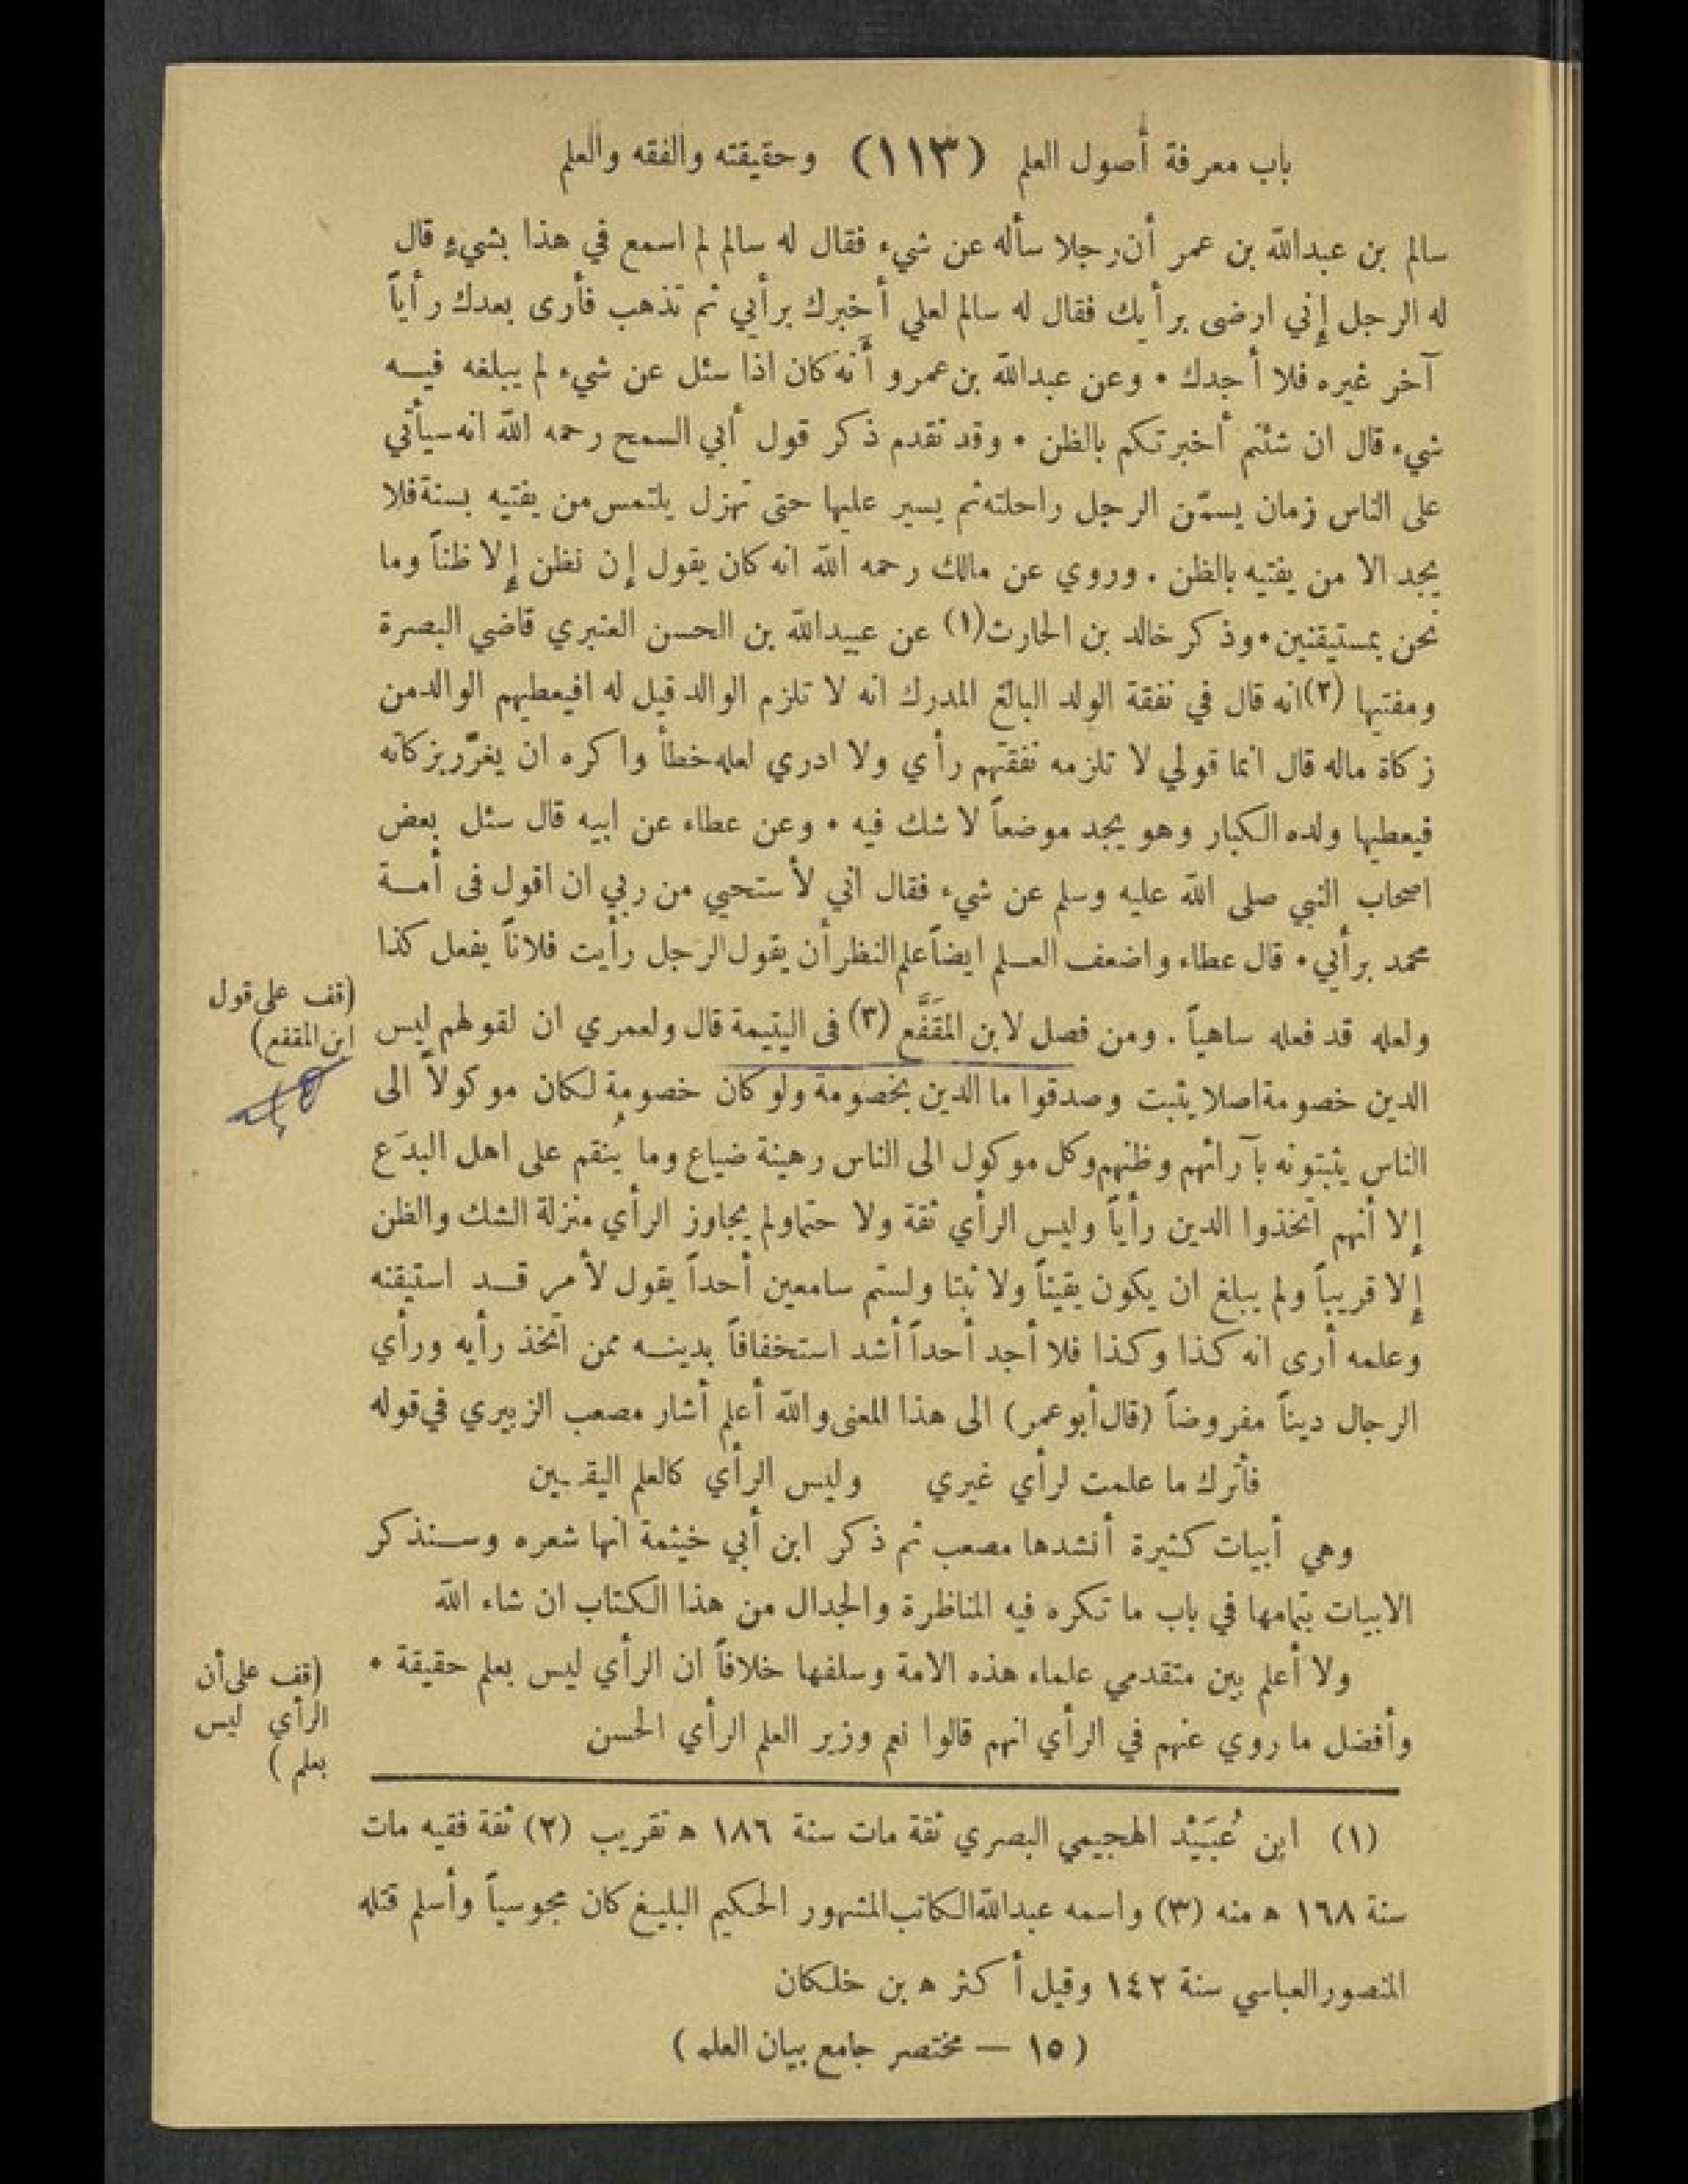 باب معرفة أصول العلم (١١٣) وحقيقته والفقه والعلم
سالم بن عبدالله بن عمر أن رجلا سأله عن شيء فقال له سالم لم اسمع في هذا بشيء قال
له الرجل إني ارضى برأيك فقال له سالم لعلي أخبرك برأيي ثم تذهب فأرى بعدك رأياً
آخر غيره فلا أجدك • وعن عبدالله بن عمرو أنه كان اذا سئل عن شيء لم يبلغه فيه
شيء قال ان شئتم أخبرتكم بالظن • وقد تقدم ذكر قول أبي السمح رحمه الله انه سيأتي
على الناس زمان يسمّن الرجل راحلته ثم يسير عليها حتى تهزل يلتمس من يفتيه بسنة فلا
يجد الا من يفتيه بالظن . وروي عن مالك رحمه الله انه كان يقول إن نظن إلا ظناً وما
نحن بمستيقنين • وذكر خالد بن الحارث (١) عن عبيدالله بن الحسن العنبري قاضي البصرة
ومفتيها (٢) انه قال في نفقة الولد البالغ المدرك انه لا تلزم الوالد قيل له افيعطيهم الوالد من
زكاة ماله قال انما قولي لا تلزمه نفقتهم رأي ولا ادري لعله خطأ واكره ان يغرّر بزكاته
فيعطيها ولده الكبار وهو يجد موضعاً لا شك فيه • وعن عطاء عن ابيه قال سئل بعض
اصحاب النبي صلى الله عليه وسلم عن شيء فقال اني لأستحيي من ربي ان اقول فى أمة
محمد برأيي • قال عطاء واضعف العلم ايضاً علم النظر أن يقول الرجل رأيت فلاناً يفعل كذا
ولعله قد فعله ساهياً . ومن فصل لابن المقَفَّع (٣) فى اليتيمة قال ولعمري ان لقولهم ليس
(قف على قول
ابن المقفع)
الدين خصومة اصلا يثبت وصدقوا ما الدين بخصومة ولو كان خصومة لكان موكولاً الى
الناس يثبتونه بآرائهم وظنهم وكل موكول الى الناس رهينة ضياع وما يُنقم على اهل البدَع
إلا أنهم اتخذوا الدين رأياً وليس الرأي ثقة ولا حتما ولم يجاوز الرأي منزلة الشك والظن
إلا قريباً ولم يبلغ ان يكون يقيناً ولا ثبتا ولستم سامعين أحداً يقول لأمر قد استيقنه
وعلمه أرى انه كذا وكذا فلا أجد أحداً أشد استخفافاً بدينه ممن اتخذ رأيه ورأي
الرجال ديناً مفروضاً (قال أبو عمر) الى هذا المعنى والله أعلم أشار مصعب الزبيري في قوله
فأترك ما علمت لرأي غيري وليس الرأي كالعلم اليقين
وهي أبيات كثيرة أنشدها مصعب ثم ذكر ابن أبي خيثمة انها شعره وسنذكر
الابيات بتمامها في باب ما تكره فيه المناظرة والجدال من هذا الكتاب ان شاء الله
ولا أعلم بين متقدمي علماء هذه الامة وسلفها خلافاً ان الرأي ليس بعلم حقيقة •
وأفضل ما روي عنهم في الرأي انهم قالوا نعم وزير العلم الرأي الحسن
(قف على أن
الرأي ليس
بعلم)
(١) ابن عُبَيْد الهجيمي البصري ثقة مات سنة ١٨٦ ه تقريب (٢) ثقة فقيه مات
سنة ١٦٨ ه منه (٣) واسمه عبدالله الكاتب المشهور الحكيم البليغ كان مجوسياً وأسلم قتله
المنصور العباسي سنة ١٤٢ وقيل أكثر ه بن خلكان
(١٥ — مختصر جامع بيان العلم)